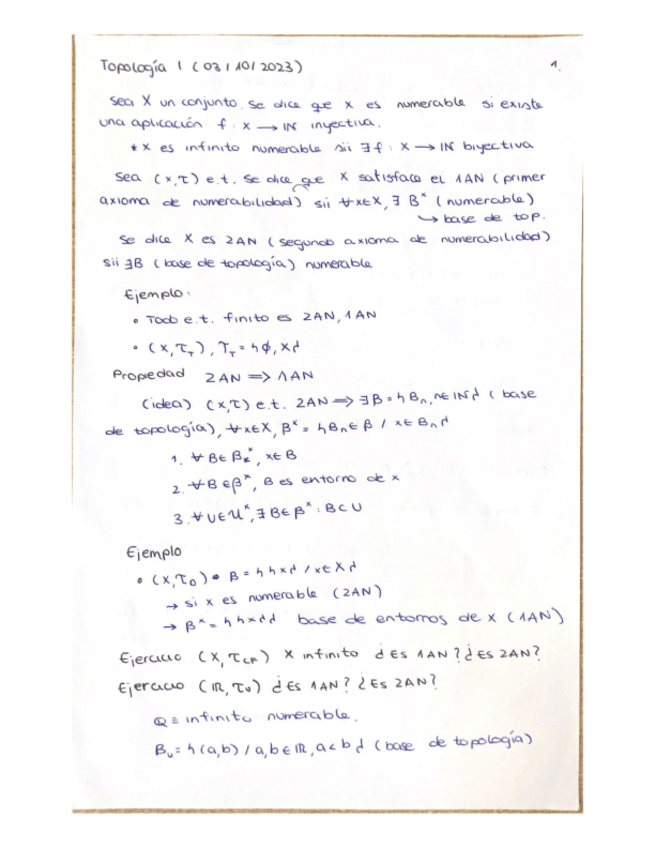 Topología 1 (03/10/2023) 1.
Sea X un conjunto. Se dice que X es numerable si existe
una aplicación f: X → IN inyectiva.
* X es infinito numerable sii ∃ f: X → IN biyectiva
Sea (X,τ) e.t. Se dice que X satisface el 1AN (primer
axioma de numerabilidad) sii ∀x∈X, ∃ β^x (numerable)
↳ base de top.
Se dice X es 2AN (segundo axioma de numerabilidad)
sii ∃B (base de topología) numerable
Ejemplo:
• Todo e.t. finito es 2AN, 1AN
• (X,τ_T), τ_T = {∅, X}
Propiedad 2AN ⟹ 1AN
(idea) (X,τ) e.t. 2AN ⟹ ∃β = {B_n, n∈IN} (base
de topología), ∀x∈X, β^x = {B_n∈β / x∈B_n}
1. ∀B∈β^x, x∈B
2. ∀B∈β^x, B es entorno de x
3. ∀U∈U^x, ∃B∈β^x : B⊂U
Ejemplo
• (X,τ_D) • β = {{x} / x∈X}
→ si X es numerable (2AN)
→ β^x = {{x}} base de entornos de x (1AN)
Ejercicio (X, τ_CF) X infinito ¿Es 1AN? ¿Es 2AN?
Ejercicio (IR, τ_u) ¿Es 1AN? ¿Es 2AN?
Q ≡ infinito numerable.
B_u = {(a,b) / a,b∈IR, a<b} (base de topología)